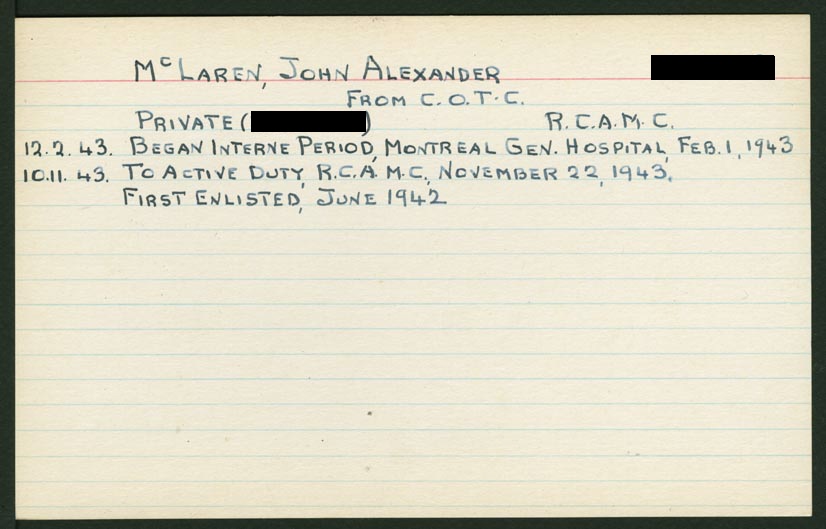 McLAREN, JOHN ALEXANDER
FROM C.O.T.C.
PRIVATE ( ) R.C.A.M.C.
12.2.43. BEGAN INTERNE PERIOD, MONTREAL GEN. HOSPITAL, FEB. 1, 1943
10.11.43. TO ACTIVE DUTY, R.C.A.M.C., NOVEMBER 22, 1943.
FIRST ENLISTED, JUNE 1942